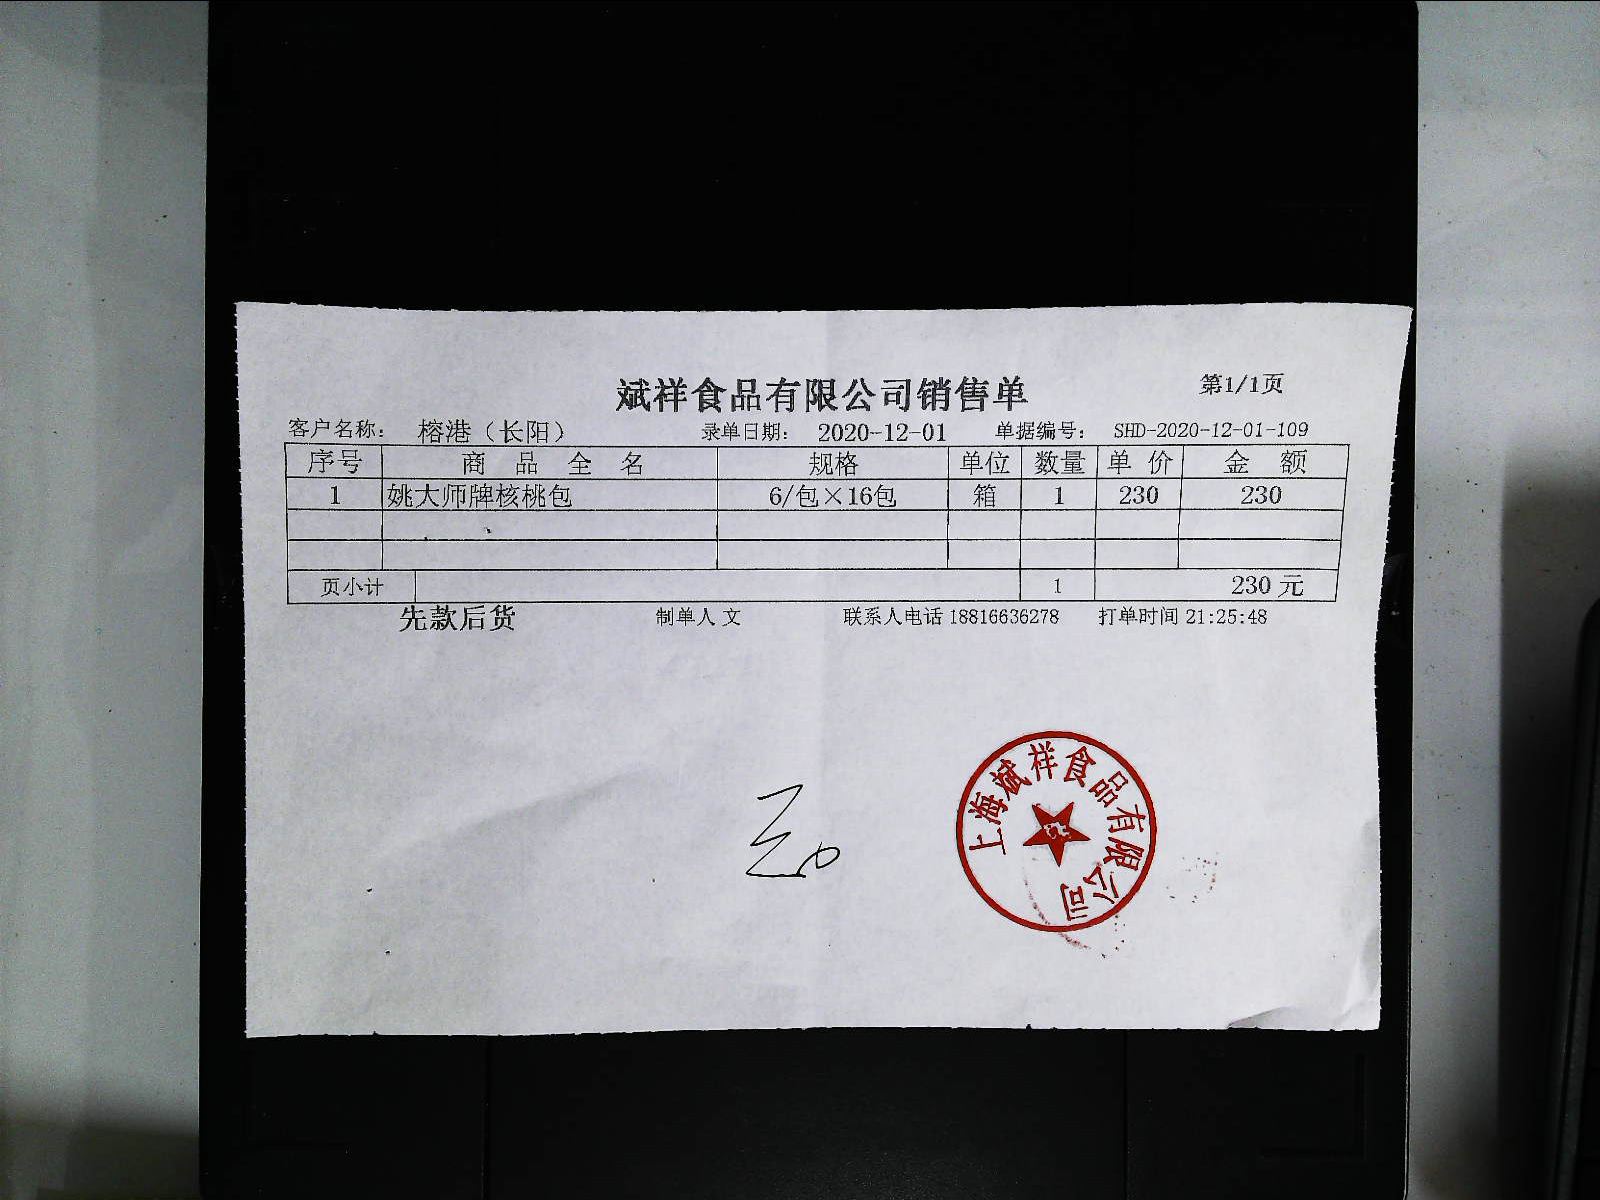 斌祥食品有限公司销售单
第1/1页
客户名称： 榕港（长阳） 录单日期： 2020-12-01 单据编号： SHD-2020-12-01-109
序号 商品全名 规格 单位 数量 单价 金额
1 姚大师牌核桃包 6/包×16包 箱 1 230 230
页小计 1 230元
先款后货 制单人 文 联系人电话 18816636278 打单时间 21:25:48
上海斌祥食品有限公司